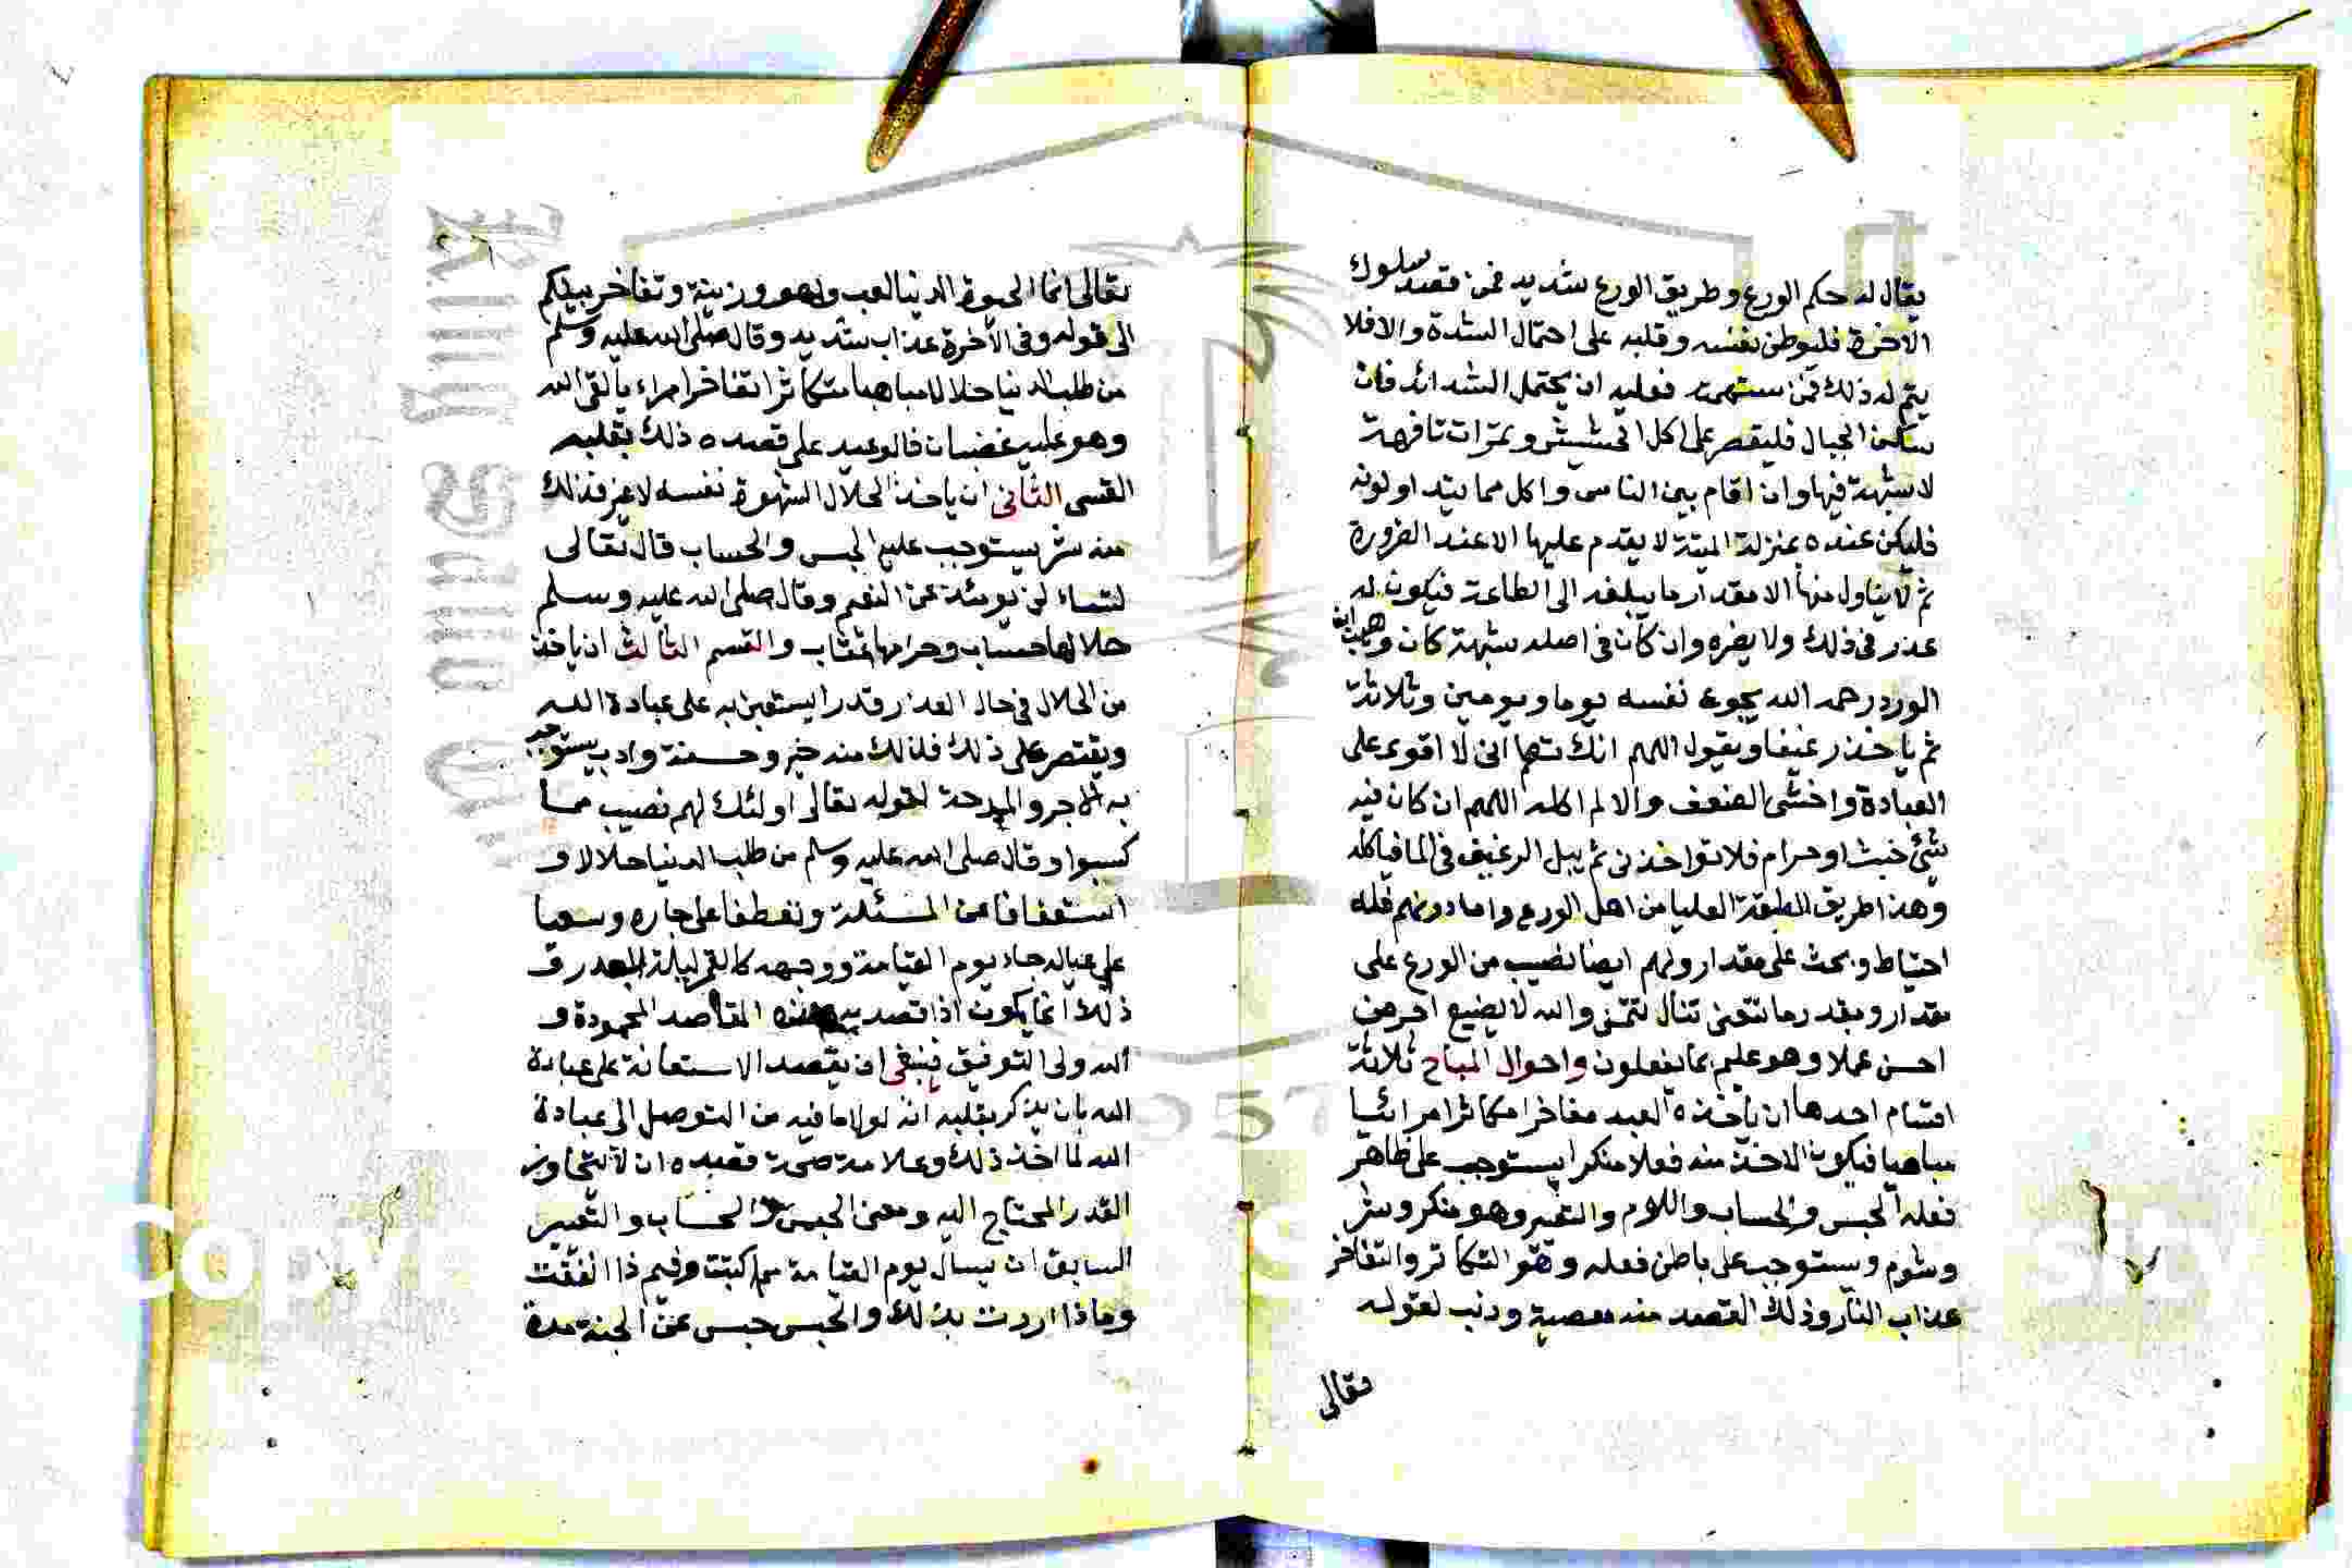 يقال له حكم الورع وطريق الورع شديد فمن قصد سلوك
الاخرة فليوطن نفسه وقلبه على احتمال الشدة والا فلا
يتم له ذلك فمن فعليه ان يحتمل الشدائد فان
سكن الجبال فليقصر على اكل الحشيش وثمرات تافهة
لا شبهة فيها وان اقام بين الناس واكل مما
فليكن عنده بمنزلة الميتة لا يقدم عليها الا عند الضرورة
ثم لا يناول منها الا مقدار ما يبلغه الى الطاعة فيكون له
عذر في ذلك ولا يضره وان كان في اصله شبهة كان وهب ابن
الورد رحمه الله يجوع نفسه يوما ويومين وثلاثة
ثم ياخذ رغيفا ويقول اللهم انك تعلم اني لا اقوى على
العبادة واخشى الضعف والا لم اكله اللهم ان كان فيه
شئ خبث او حرام فلا تواخذني ثم يبل الرغيف في الما فياكله
وهذا طريق الطبقة العليا من اهل الورع واما دونهم فله
احتياط وبحث على مقدار ولهم ايضا نصيب من الورع على
مقدار وبقدر ما تتعنى تنال تتمنى والله لا يضيع اجر من
احسن عملا وهو عليم بما يفعلون واحوال المباح ثلاثة
اقسام احدها ان ياخذه العبد مفاخرا مكاثرا مرائيا
مباهيا فيكون الاخذ منه فعلا منكرا يستوجب على ظاهر
فعله الحبس والحساب واللوم والتعير وهو منكر وشر
وشوم ويستوجب على باطن فعله وهو التكاثر والتفاخر
عذاب النار وذلك القصد منه معصية وذنب لقوله
تعالى
تعالى انما الحيوة الدنيا لعب ولهو وزينة وتفاخر بينكم
الى قوله وفي الاخرة عذاب شديد وقال صلى الله عليه وسلم
من طلب الدنيا حلالا مباهيا متكاثرا تفاخرا مراءيا لقي الله
وهو عليه غضبان فالوعيد على قصده ذلك بقلبه
القسم الثاني ان ياخذ الحلال الشهوة نفسه لا غير فذلك
منه شر يستوجب عليه الحبس والحساب قال تعالى
لتساء لن يومئذ عن النعيم وقال صلى الله عليه وسلم
حلالها حساب وحرامها عقاب والقسم الثالث ان ياخذ
من الحلال في حال العذر قدرا يستعين به على عبادة الله
ويقتصر على ذلك فذلك منه خير وحسنة وادب يستوجب
به الاجر والمدحة لقوله تعالى اولئك لهم نصيب مما
كسبوا وقال صلى الله عليه وسلم من طلب الدنيا حلالا و
استعفافا عن المسئلة وتعطفا على جاره وسعيا
على عياله جاء يوم القيامة ووجهه كالقمر ليلة البدر ف
ذلك انما يكون اذا قصد هذه المقاصد المحمودة و
الله ولى التوفيق فينبغي ان يقصد الاستعانة على عبادة
الله بان يذكر بقلبه انه لولا ما فيه من التوصل الى عبادة
الله لما اخذ ذلك وعلامة صحة قصده ان لا يتجاوز
القدر المحتاج اليه ومعنى الحبس والحساب والتعير
السابق ان يسال يوم القيامة مم اكتسبت وفيم ذا انفقت
وماذا اردت بذلك والحبس حبس عن الجنة مدة